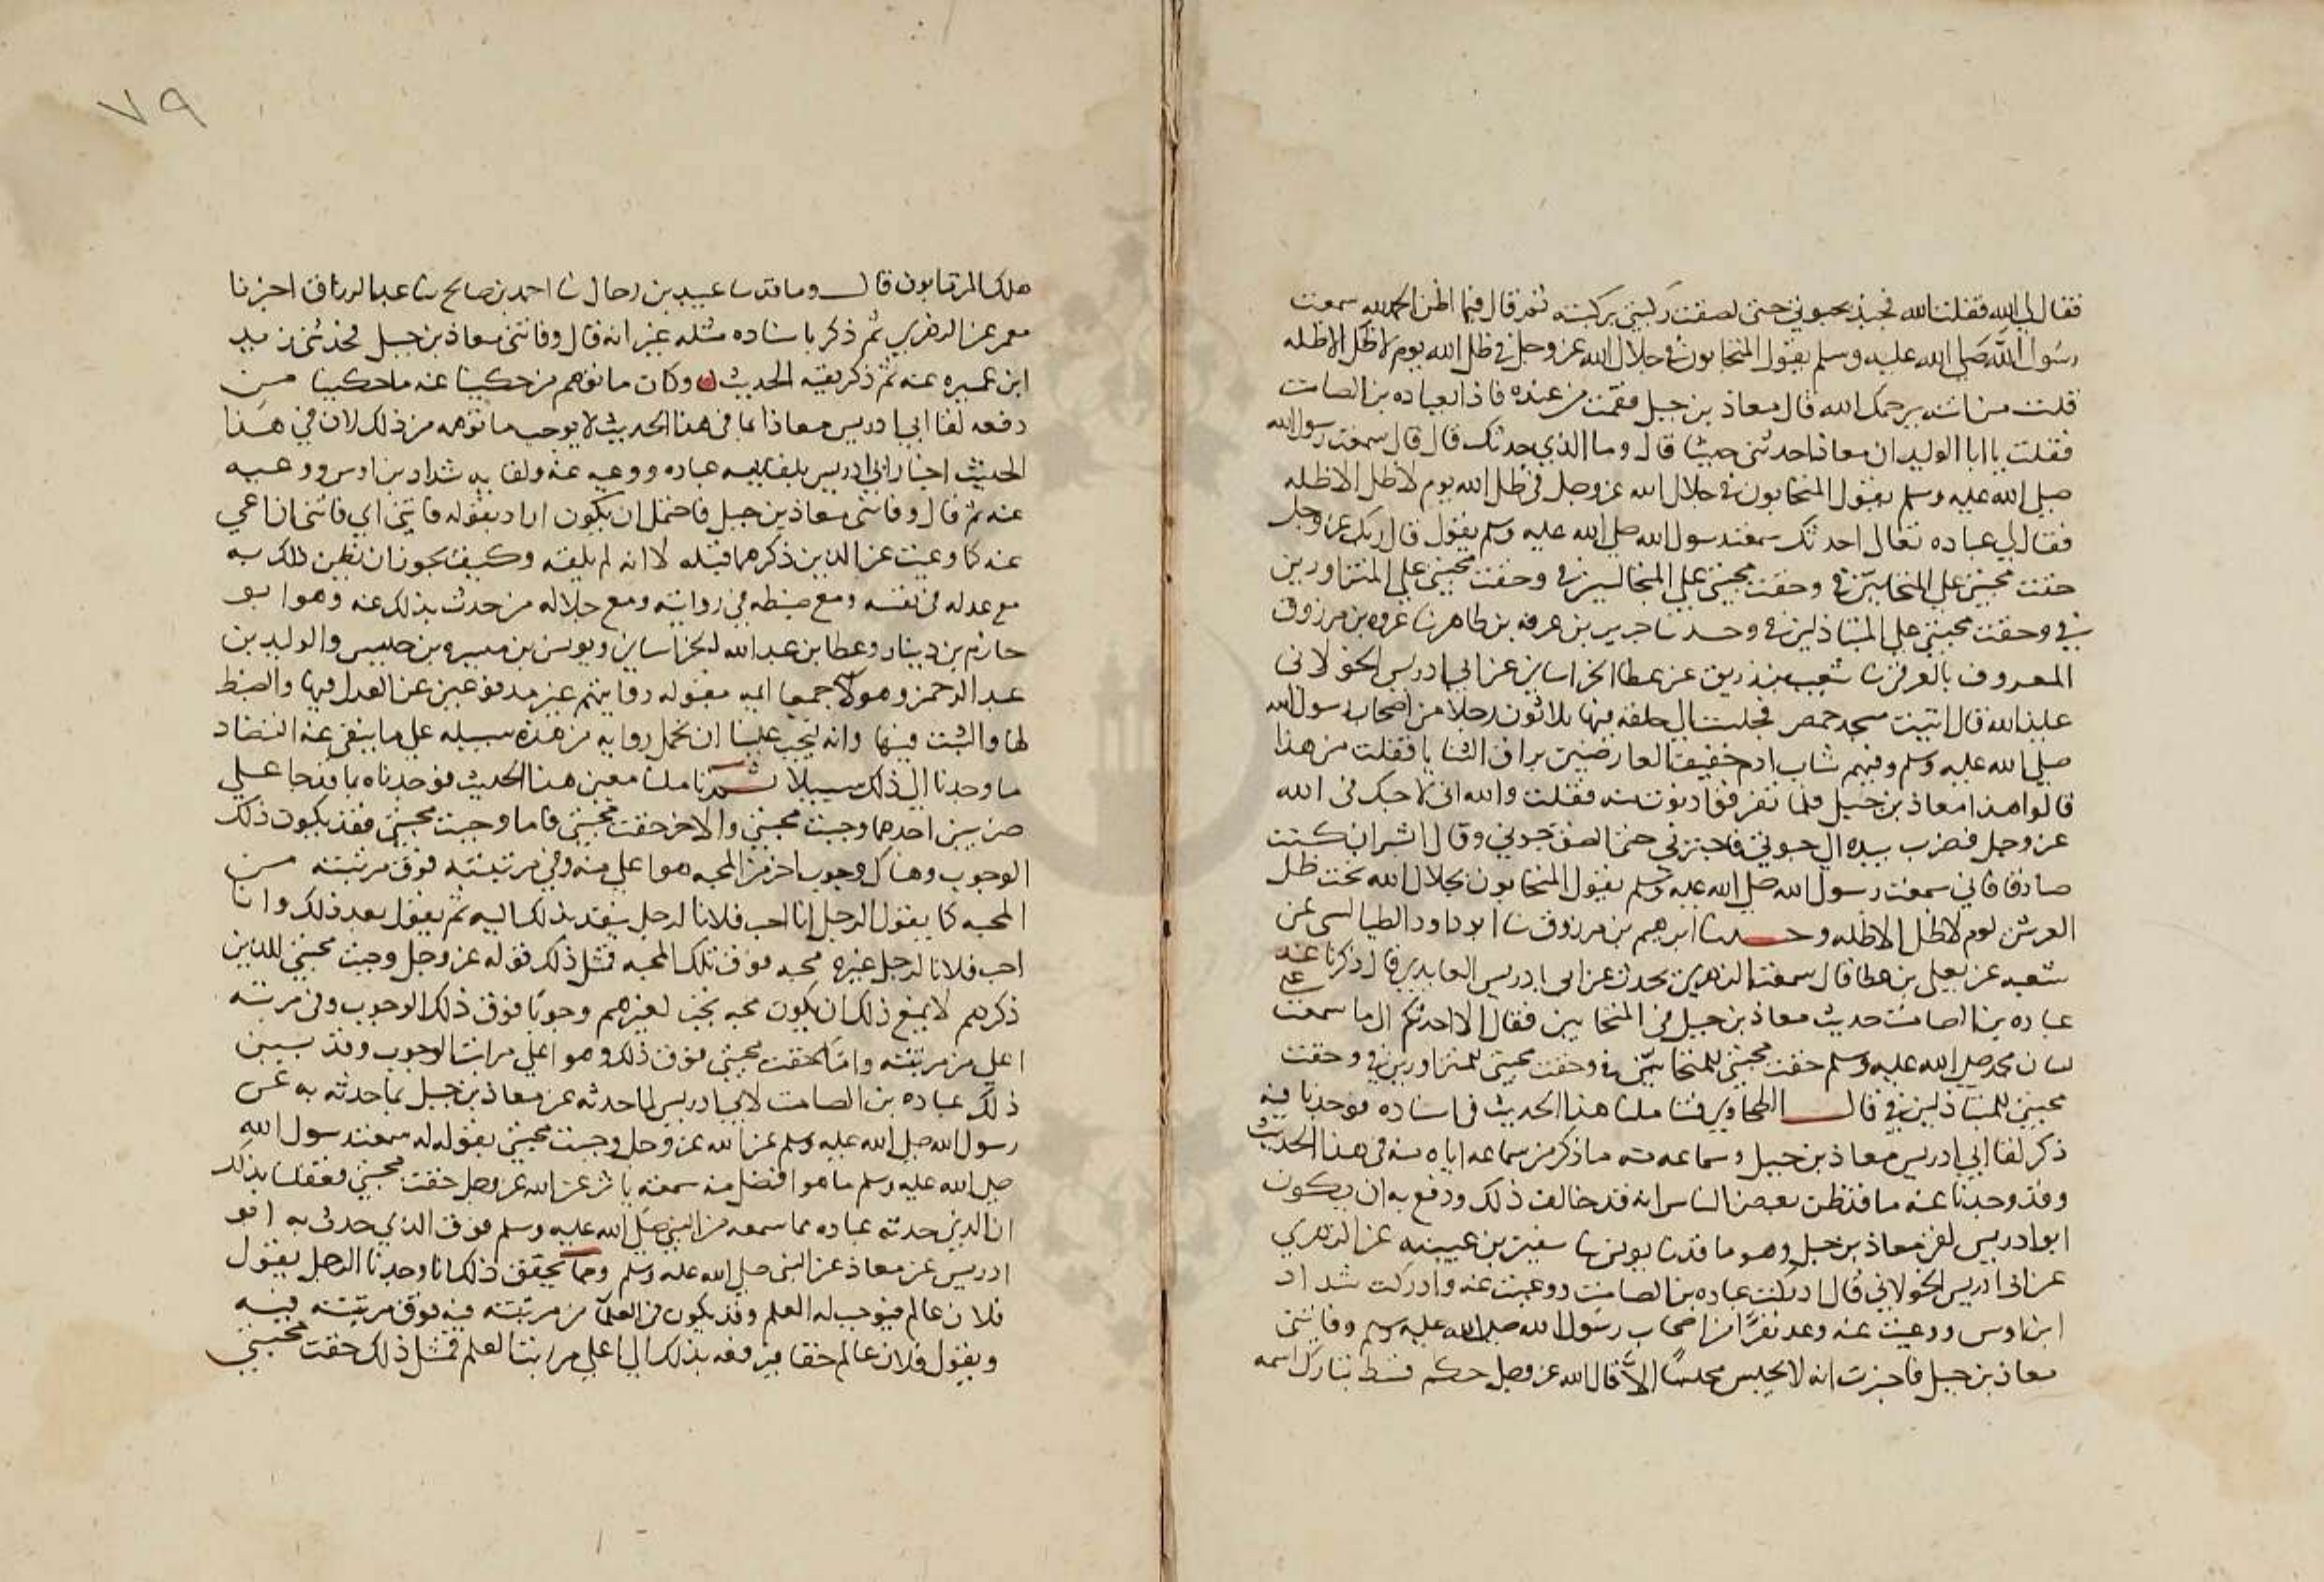 فقال لي الله فقلت الله فجبذ بحبوتي حتى لصقت ركبتي بركبته ثم قال فيما اظن الحمد لله سمعت
رسول الله صلى الله عليه وسلم يقول المتحابون في جلال الله عز وجل في ظل الله يوم لا ظل الا ظله
قلت من انت يرحمك الله قال معاذ بن جبل فقمت من عنده فاذا بعباده بن الصامت
فقلت يا ابا الوليد ان معاذا حدثني حديثا قال وما الذي حدثك قال قال سمعت رسول الله
صلى الله عليه وسلم يقول المتحابون في جلال الله عز وجل في ظل الله يوم لا ظل الا ظله
فقال لي عباده تعال احدثك سمعت رسول الله صلى الله عليه وسلم يقول قال ربك عز وجل
حقت محبتي على المتحابين في وحقت محبتي على المتجالسين في وحقت محبتي على المتزاورين
في وحقت محبتي على المتباذلين في وحدثنا جرير بن عرفه بن طاهر نا عروه بن مرزوق
المعروف بالعرقي نا شعيب بن زريق عن عطا الخراساني عن ابي ادريس الخولاني
عايذ الله قال اتيت مسجد حمص فجلست الى حلقه فيها ثلاثون رجلا من اصحاب رسول الله
صلى الله عليه وسلم وفيهم شاب ادم خفيف العارضين براق الثنايا فقلت من هذا
قالوا هذا معاذ بن جبل فلما تفرقوا دنوت منه فقلت والله اني لاحبك في الله
عز وجل فضرب بيده الى حبوتي فاجترني حتى الصق حبوتي وقال ابشر ان كنت
صادقا فاني سمعت رسول الله صلى الله عليه وسلم يقول المتحابون بجلال الله تحت ظل
العرش يوم لا ظل الا ظله وحدثنا ابرهيم بن مرزوق نا ابو داود الطيالسي عن
شعبه عن يعلى بن عطا قال سمعت الزهري يحدث عن ابي ادريس العايذي قال ذكرنا عند
عباده بن الصامت حديث معاذ بن جبل في المتحابين فقال لا احدثكم الا ما سمعت
لسان محمد صلى الله عليه وسلم حقت محبتي للمتحابين في وحقت محبتي للمتزاورين في وحقت
محبتي للمتباذلين في قال الطحاوي فتاملنا هذا الحديث في اسناده فوجدنا فيه
ذكر لقا ابي ادريس معاذ بن جبل وسماعه منه ما ذكر من سماعه اياه منه في هذا الحديث
وقد وجدنا عنه ما قد ظن بعض الناس انه قد خالف ذلك ودفع به ان يكون
ابو ادريس لقي معاذ بن جبل وهو ما قد نا يونس نا سفين بن عيينه عن الزهري
عن ابي ادريس الخولاني قال ادركت عباده بن الصامت ووعيت عنه وادركت شداد
ابن اوس ووعيت عنه وعد نفرا من اصحاب رسول الله صلى الله عليه وسلم وفاتني
معاذ بن جبل فاخبرت انه لا يجلس مجلسا الا قال الله عز وجل حكم قسط تبارك اسمه
٧٩
هلك المرتابون قال وما قد نا عبيد بن رجال نا احمد بن صالح نا عبد الرزاق اخبرنا
معمر عن الزهري ثم ذكر باسناده مثله غير انه قال وفاتني معاذ بن جبل فحدثني يزيد
ابن عميره عنه ثم ذكر بقيه الحديث وكان ما توهم من حكينا عنه ما حكينا من
دفعه لقا ابي ادريس معاذا بما في هذا الحديث لا يوجب ما توهمه من ذلك لان في هذا
الحديث اخبار ابي ادريس بلقايه عباده ووعيه عنه ولقايه شداد بن اوس ووعيه
عنه ثم قال وفاتني معاذ بن جبل فاحتمل ان يكون اراد بقوله فاتني اي فاتني ان اعي
عنه كما وعيت عن الذين ذكرهما قبله لا انه لم يلقه وكيف يجوز ان يظن ذلك به
مع عدله في نفسه ومع ضبطه في روايته ومع جلاله من حدث بذلك عنه وهو ابو
حازم بن دينار وعطا بن عبد الله الخراساني ويونس بن ميسره بن حلبس والوليد بن
عبد الرحمن وهولا جميعا ايمه مقبوله روايتهم غير مدفوعين عن العدل فيها والضبط
لها والثبت فيها وانه ليجب علينا ان نحمل روايه من هذه سبيله على ما ينفي عنه التضاد
ما وجدنا الى ذلك سبيلا ثم تاملنا معنى هذا الحديث فوجدناه بما قد جا على
ضربين احدهما وجبت محبتي والاخر حقت محبتي فاما وجبت محبتي فقد يكون ذلك
الوجوب وهناك وجوب اخر من المحبه هو اعلى منه وفي مرتبته فوق مرتبته من
المحبه كما يقول الرجل انا احب فلانا لرجل يقصد بذلك اليه ثم يقول بعد ذلك وانا
احب فلانا لرجل غيره محبه فوق تلك المحبه فمثل ذلك قوله عز وجل وجبت محبتي للذين
ذكرهم لا يمنع ذلك ان يكون محبه تجب لغيرهم وجوبا فوق ذلك الوجوب وفي مرتبه
اعلى من مرتبته واما حقت محبتي فوق ذلك وهو اعلى مراتب الوجوب وقد بين
ذلك عباده بن الصامت لابي ادريس لما حدثه عن معاذ بن جبل بما حدثه به عن
رسول الله صلى الله عليه وسلم عن الله عز وجل وجبت محبتي بقوله له سمعت رسول الله
صلى الله عليه وسلم ما هو افضل منه سمعته ياثر عن الله عز وجل حقت محبتي فعقلنا بذلك
ان الذي حدثه عباده مما سمعه من النبي صلى الله عليه وسلم فوق الذي حدث به ابو
ادريس عن معاذ عن النبي صلى الله عليه وسلم ومما يحقق ذلك انا وجدنا الرجل يقول
فلان عالم فيوجب له العلم وقد يكون في العلما من مرتبته فيه فوق مرتبته فيه
ويقول فلان عالم حقا فيرفعه بذلك الى اعلى مراتب العلم فمثل ذلك حقت محبتي